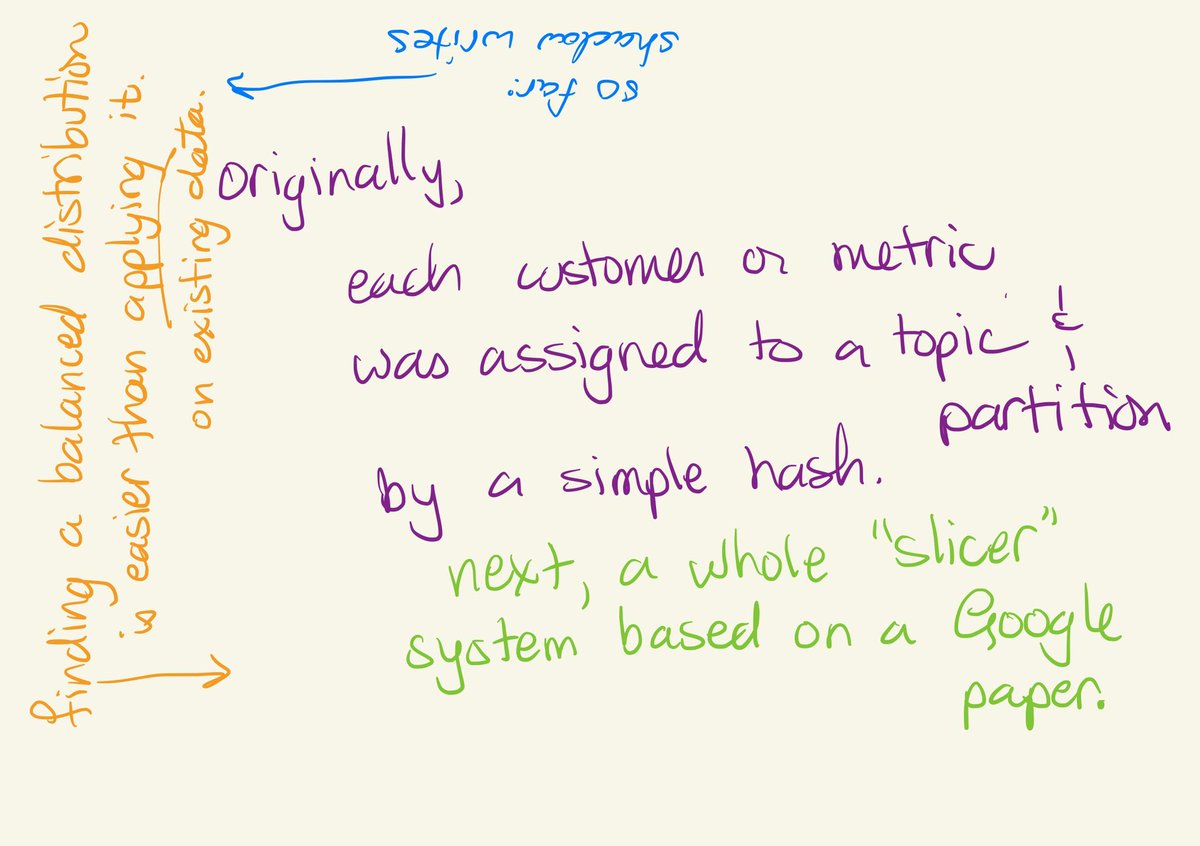 originally,
each customer or metric
was assigned to a topic &
partition
by a simple hash.
next, a whole "slicer"
system based on a Google
paper.
finding a balanced distribution
is easier than applying it.
on existing data.
so far:
shadow writes